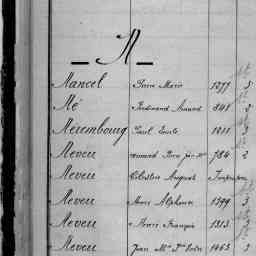 N
Nancel Pierre Marie 1277 3
Né Ferdinand Amand 848 3
Nerembourg Paul Emile 1211 3
Neveu Pierre 784 2
Neveu Célestin Auguste
Neveu Alphonse 1399 3
Neveu Henri François 1313 3
Neveu Jean 1463 3